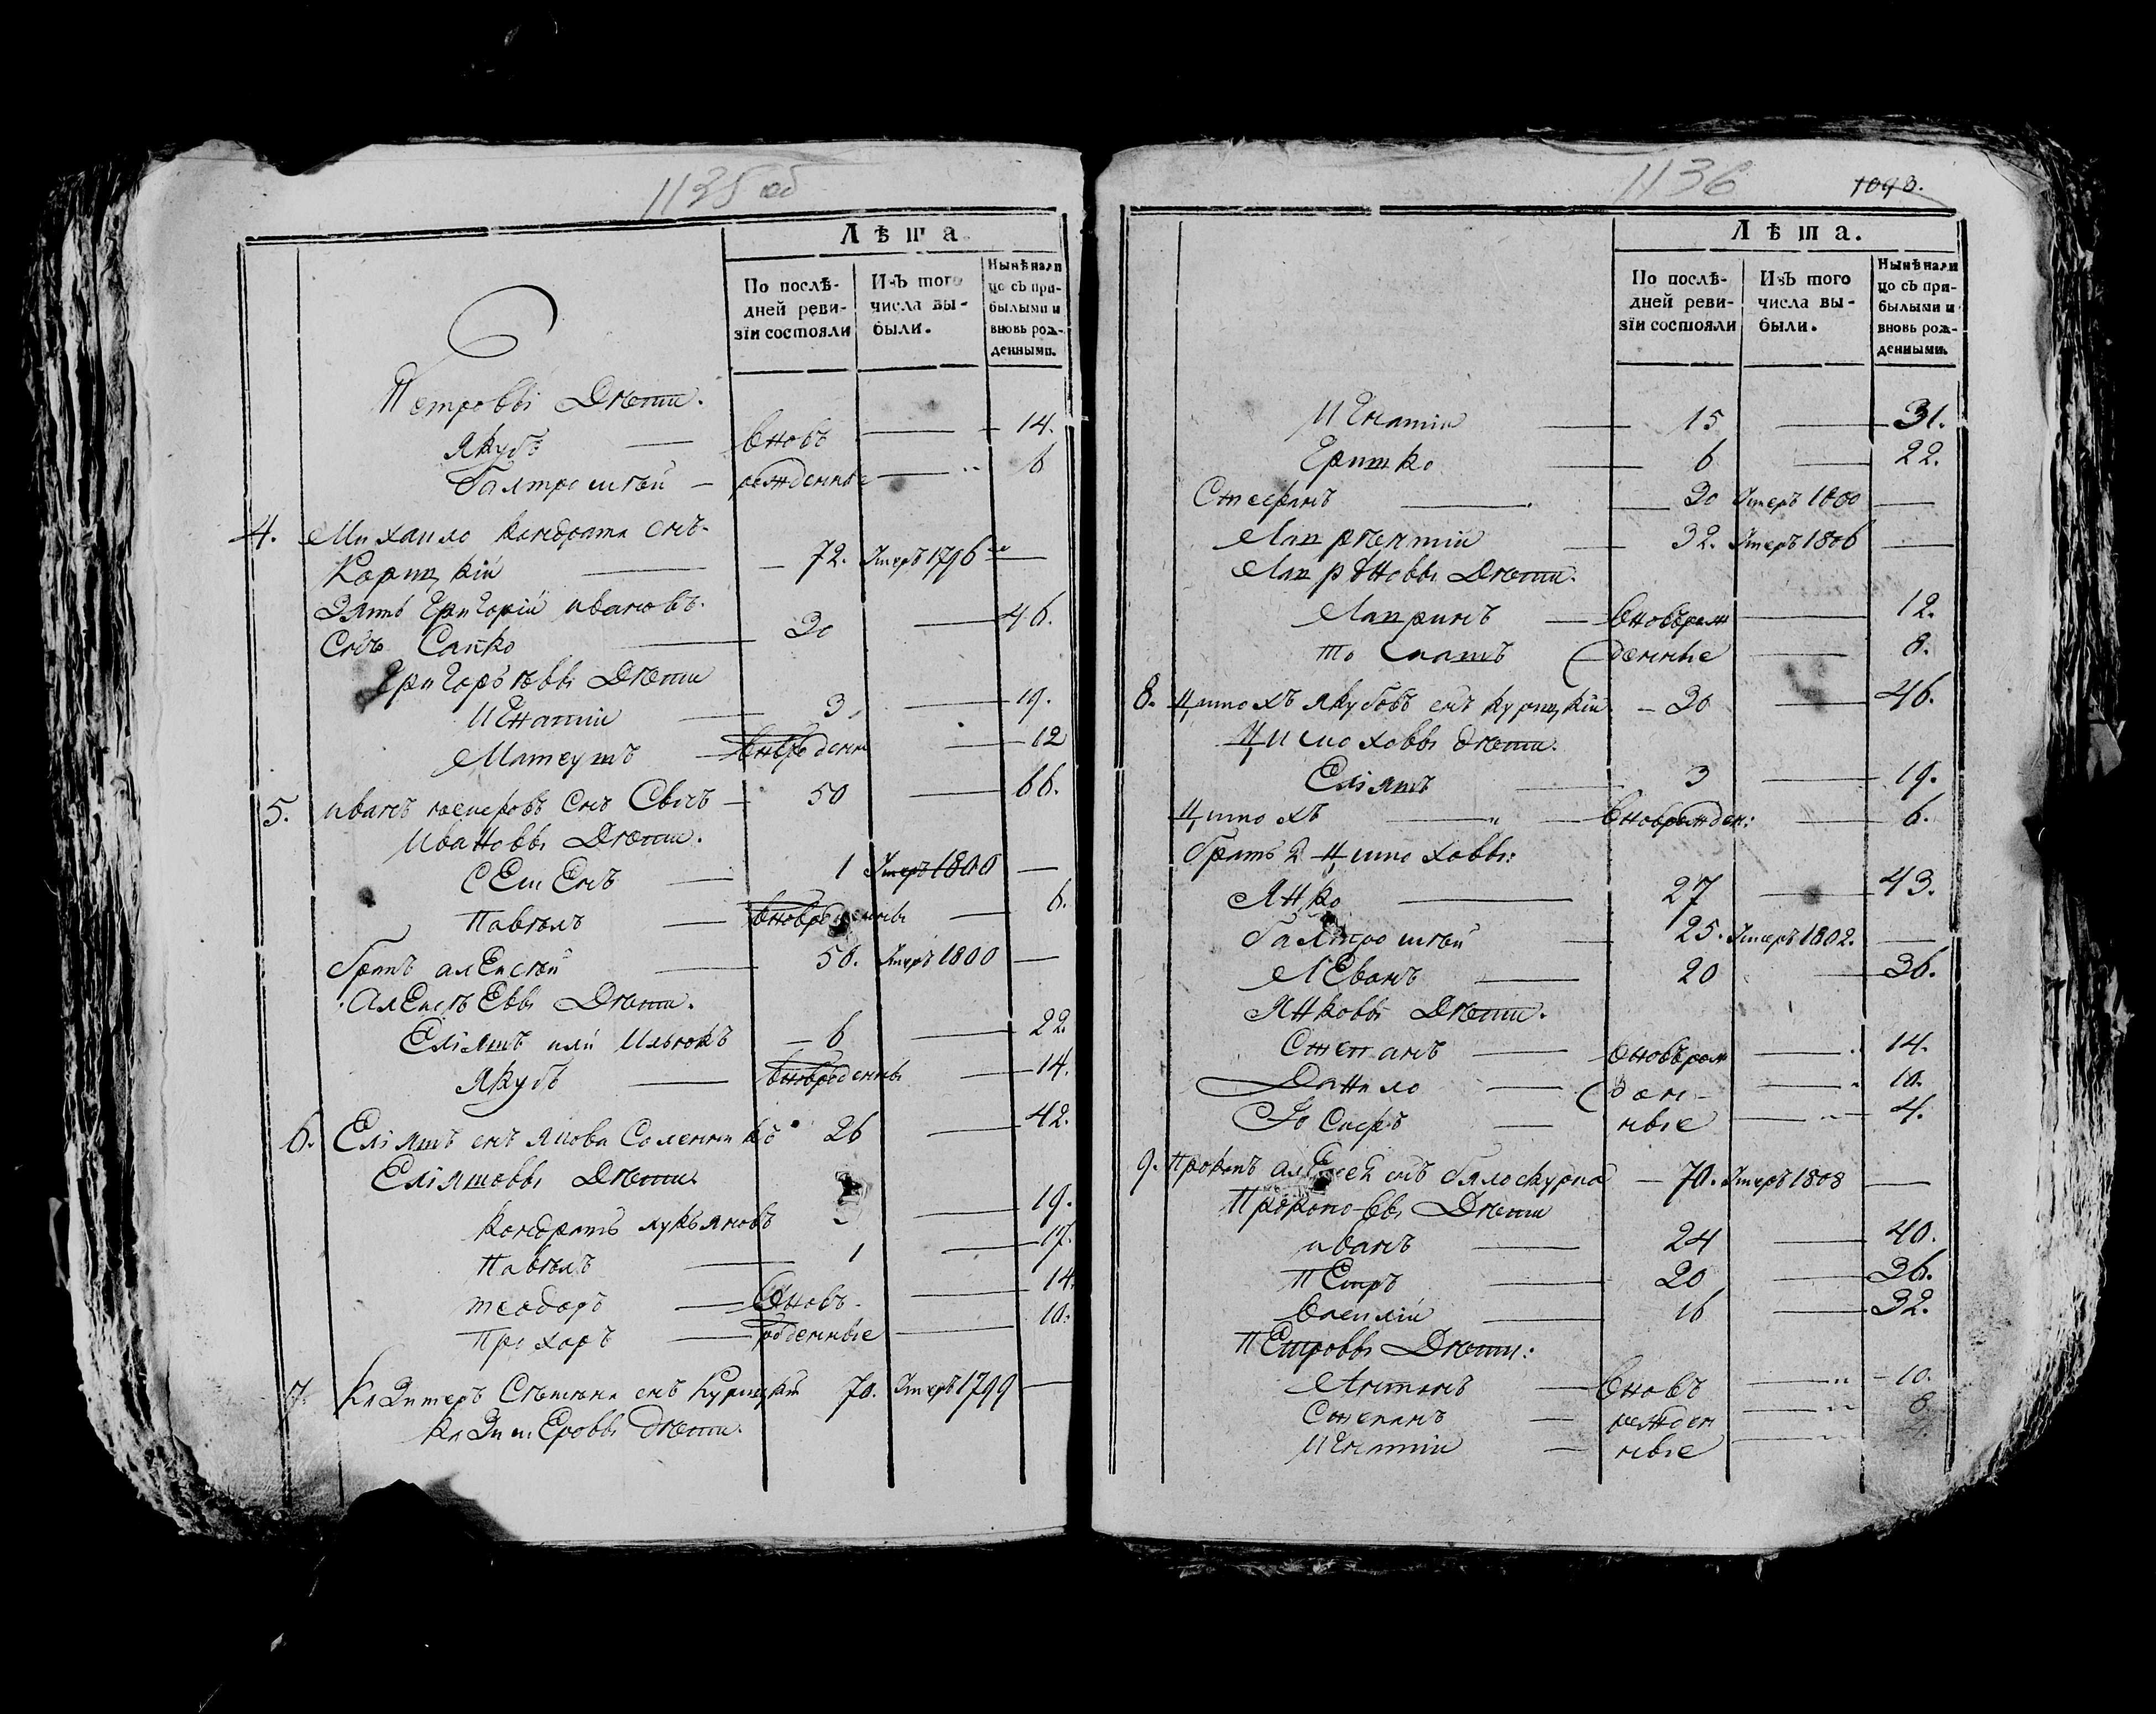 1135 об
Лѣта.
По послѣ-
дней реви-
зіи состояли
Изъ того
числа вы-
были.
Нынѣ нали
цо съ при-
былыми и
вновь рож-
денными.
Петровы Дѣти.
Якубъ — вновь — 14.
Балтромѣй — рожденные — 6
4. Михайло Кондрата снъ.
Корицкій — 72. Умеръ 1796 —
Зять Григорій Ивановъ.
Снъ Сапко — 30 — 46.
Григорьевы Дѣти
Игнатій — 3 — 19.
Матеушъ — вновь рожден — 12
5. Иванъ Петровъ снъ — 50 — 66.
Ивановы Дѣти.
Семенъ — 1 Умеръ 1800 —
Павелъ — 6.
Братъ Алексѣй — 56. Умеръ 1800 —
Алексѣевы Дѣти.
Еліяшъ или Ильюкъ — 6 — 22
Якубъ — 14.
6. Еліяшъ снъ 26 — 42.
Еліяшовы Дѣти
Кондратъ Лукьяновъ 3 — 19.
Павелъ — 1 — 17.
Теодоръ — вновь — 14
Прохоръ — рожденные — 10.
7. Казимеръ снъ Курицкій 70. Умеръ 1799 —
Казимеровы дѣти.
1136
1093.
Лѣта.
По послѣ-
дней реви-
зіи состояли
Изъ того
числа вы-
были.
Нынѣ нали
цо съ при-
былыми и
вновь рож-
денными.
Игнатій — 15 — 31.
Гришко — 6 — 22.
Стефанъ — 30 Умеръ 1800 —
Лаврентій — 32. Умеръ 1806 —
Дѣти.
Лавринъ — вновь рож — 12.
денные — 8.
8. Цимохъ Якубовъ снъ Курицкій — 30 — 46.
Цимоховы дѣти.
Еліяшъ — 3 — 19.
Цимохъ — вновь рожден: — 6.
Братья 2 Цимоховы:
Янко — 27 — 43.
Балтромѣй — 25. Умеръ 1802. —
Леванъ — 20 — 36.
Янковы Дѣти.
Степанъ — вновь рож — 14.
Данило — ден- — 10.
Іосифъ — ные — 4.
9. Прокопъ Алексѣй снъ — 70. Умеръ 1808 —
Прокоповы Дѣти
Иванъ — 24 — 40.
Петръ — 20 — 36.
Василій — 16 — 32.
Петровы Дѣти:
Антонъ — вновь — 10.
Степанъ — рожден — 8
Игнатій — ные — 4.